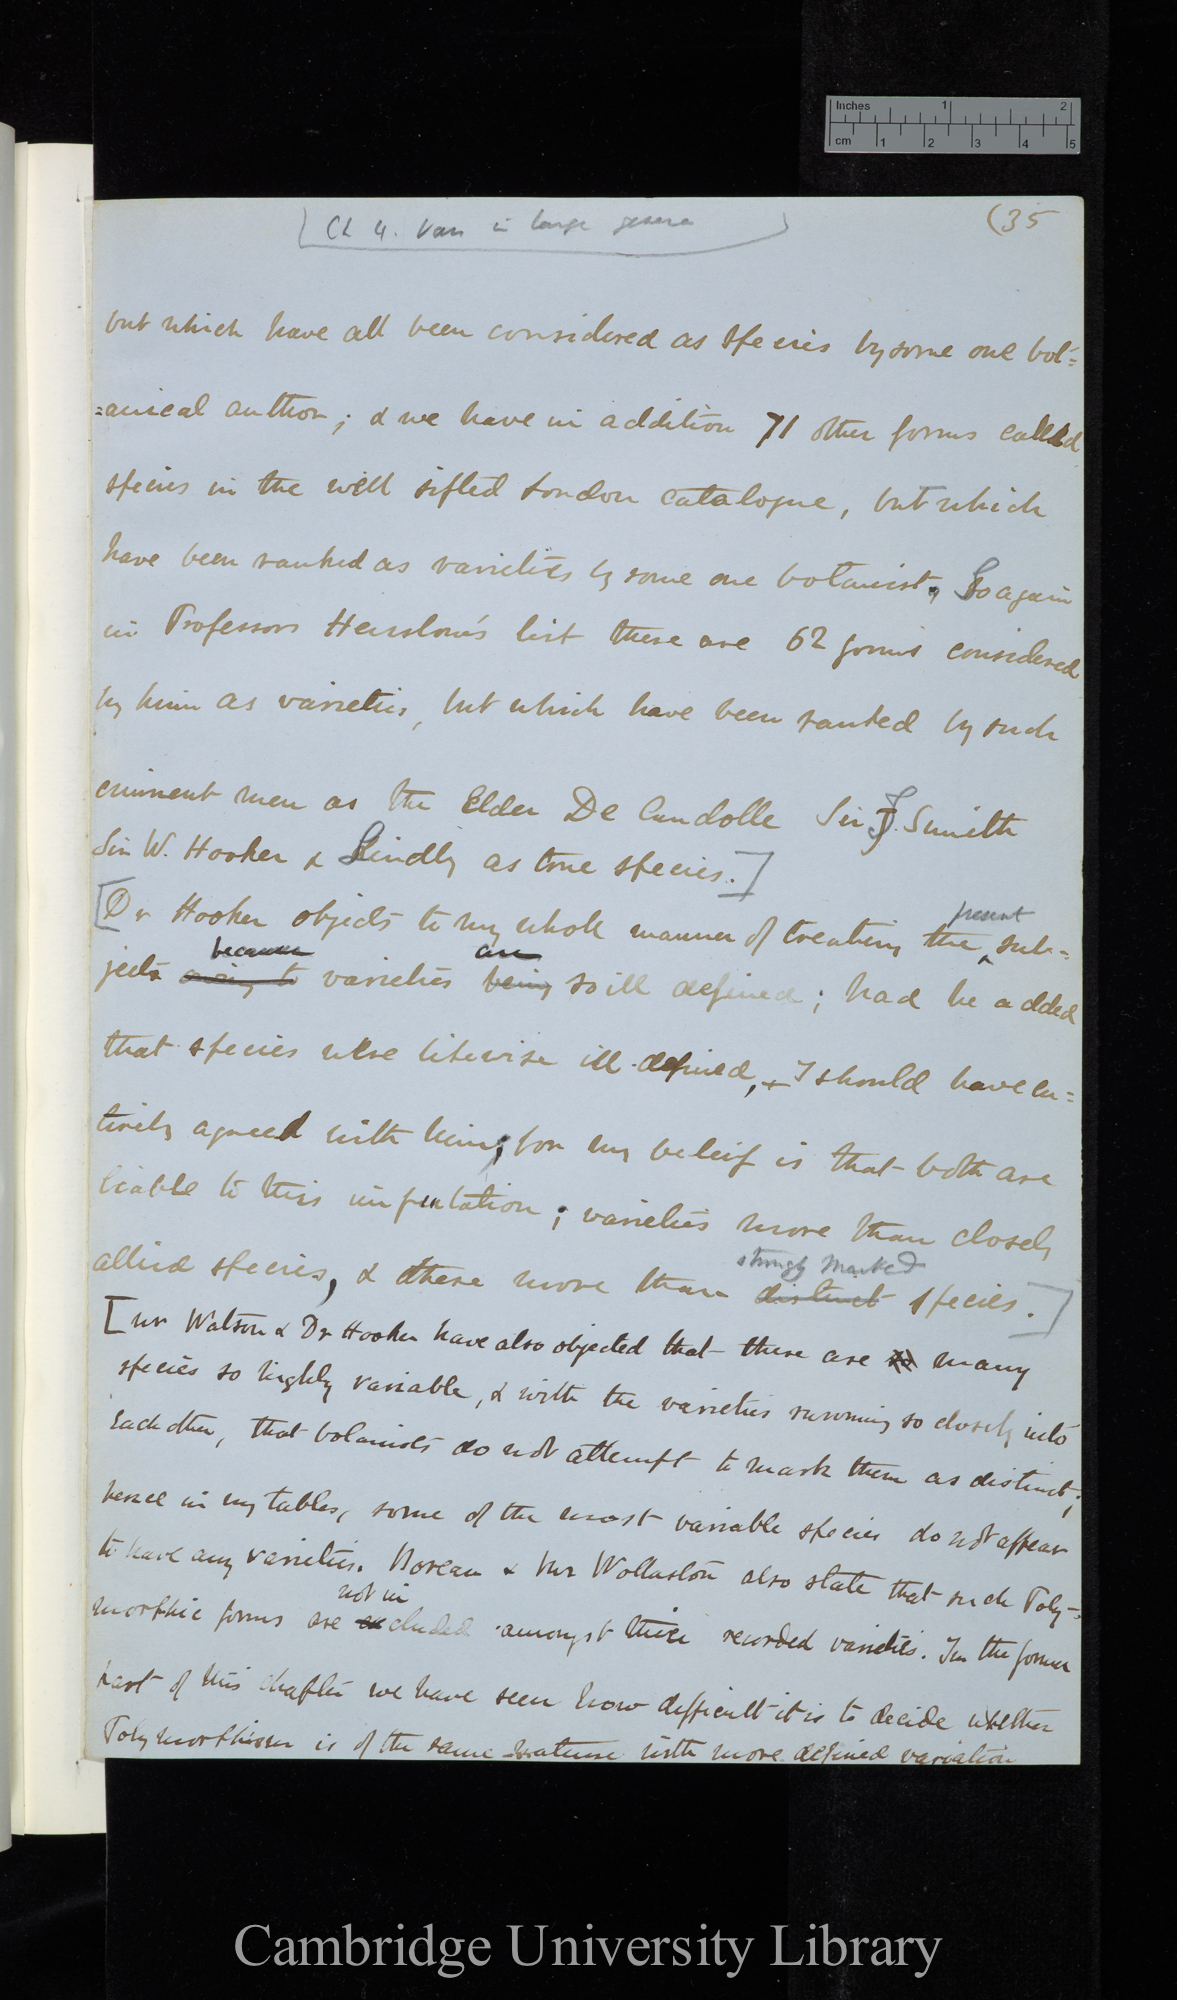 Inches 1 2
cm 1 2 3 4 5
(Ch 4. Var in large genera)
(35
but which have all been considered as species by some one bot=
=anical author; & we have in addition 71 other forms called
species in the well sifted London catalogue, but which
have been ranked as varieties by some one botanist. So again
in Professors Henslow's list there are 62 forms considered
by him as varieties, but which have been ranked by such
eminent men as the Elder De Candolle Sir J. Smith
Sir W. Hooker & Lindly as true species.]
present
[Dr Hooker objects to my whole manner of treating the sub-=
because are
jects owing to varieties being so ill defined; had he added
that species were likewise ill-defined, I should have en=
tirely agreed with him; for my beleif is that both are
liable to this imputation; varieties more than closely
strongly marked
allied species, & these more than distinct species.]
[Mr Watson & Dr Hooker have also objected that there are so many
species so highly variable, & with the varieties running so closely into
each other, that botanists do not attempt to mark them as distinct;
hence in my tables, some of the most variable species do not appear
to have any varieties. Boreau & Mr Wollaston also state that such Poly-=
not in
morphic forms are excluded amongst their recorded varieties. In the former
part of this chapter we have seen how difficult it is to decide whether
Polymorphism is of the same nature with more defined variation
Cambridge University Library